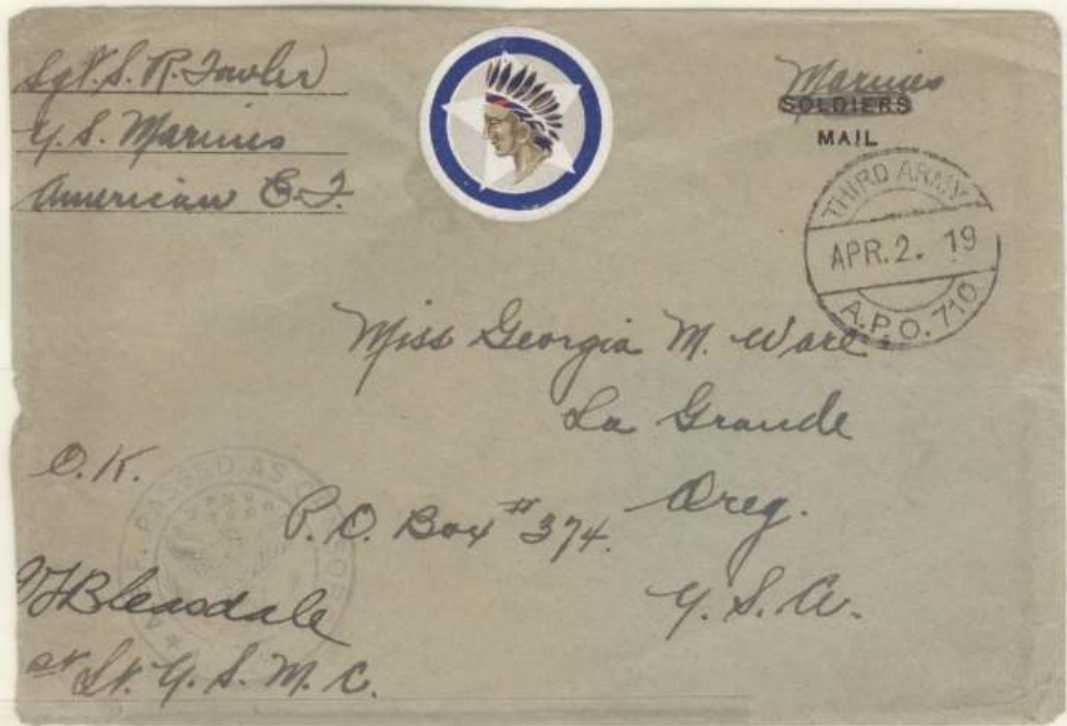 Sgt. S. R. Fowler
U. S. Marines
American E. F.
Marines
SOLDIERS
MAIL
THIRD ARMY
APR. 2. 19
A.P.O. 710
Miss Georgia M. Ware
La Grande
Oreg.
P. O. Box #374.
U. S. A.
O. K.
PASSED AS CENSORED
Bleasdale
Lt. U. S. M. C.